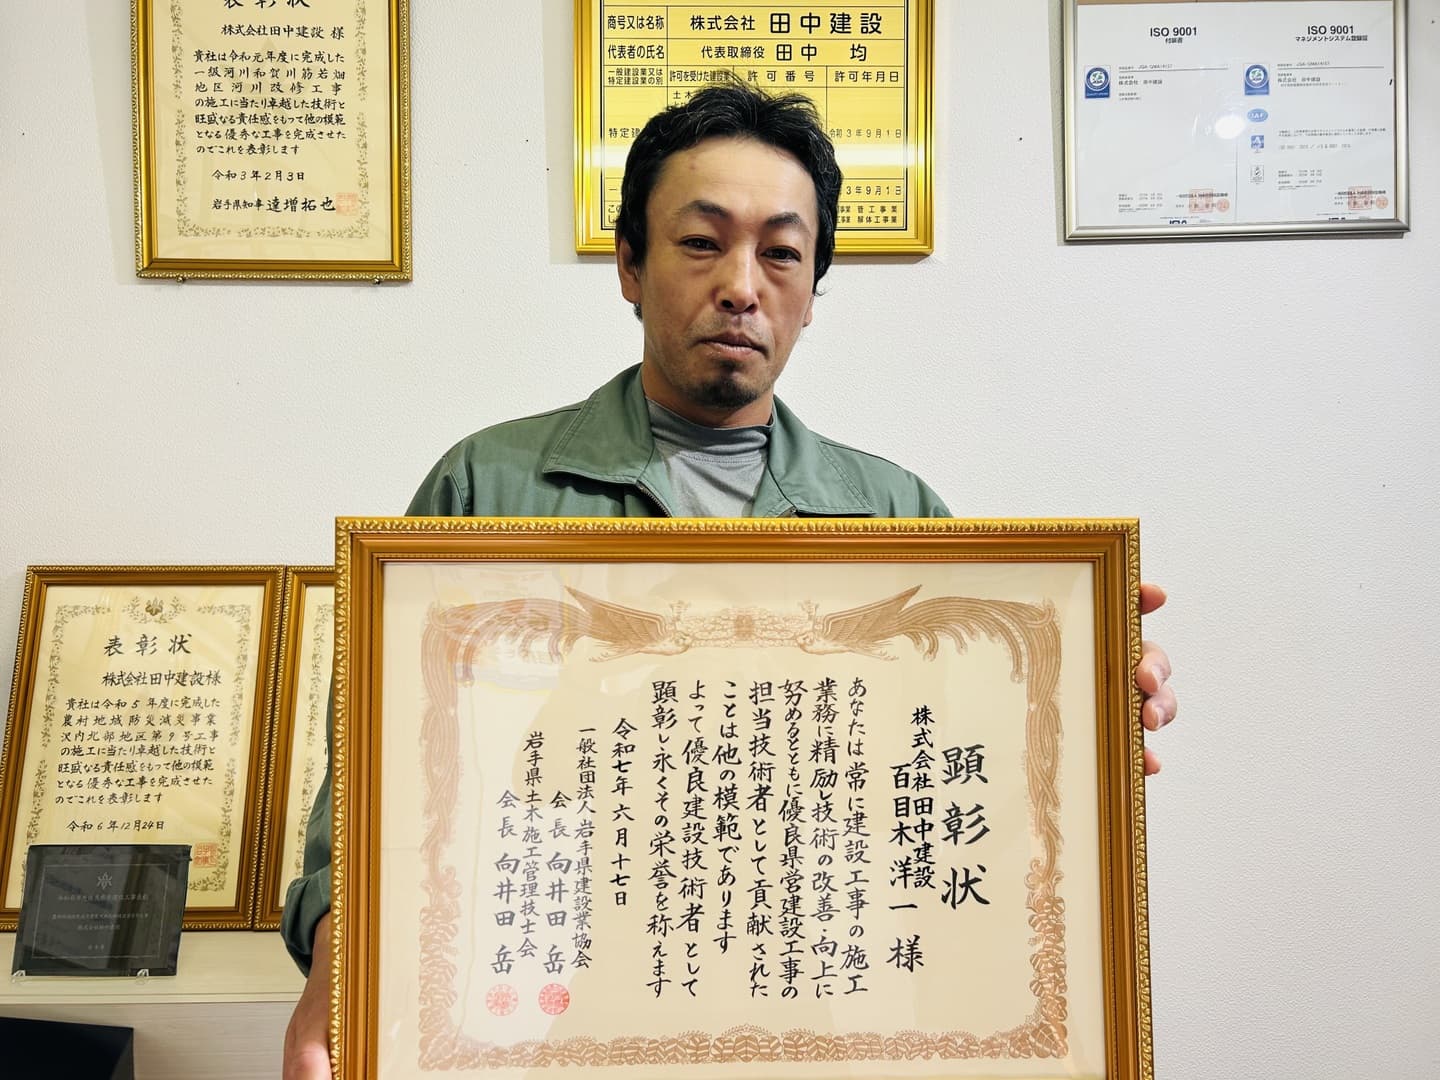 表彰状
株式会社田中建設 様
貴社は令和元年度に完成した
一級河川和賀川筋若畑
地区河川改修工事
の施工に当たり卓越した技術と
旺盛なる責任感をもって他の模範
となる優秀な工事を完成させた
のでこれを表彰します
令和3年2月3日
岩手県知事 達増拓也
商号又は名称 株式会社 田中建設
代表者の氏名 代表取締役 田中 均
一般建設業又は特定建設業の別 許可を受けた建設業 許可番号 許可年月日
令和3年9月1日
3年9月1日
管工事業
解体工事業
ISO 9001
付属書
株式会社 田中建設
ISO 9001
マネジメントシステム登録証
株式会社 田中建設
表彰状
株式会社田中建設様
貴社は令和5年度に完成した
農村地域防災減災事業
沢内北部地区第9号工事
の施工に当たり卓越した技術と
旺盛なる責任感をもって他の模範
となる優秀な工事を完成させた
のでこれを表彰します
令和6年12月24日
顕彰状
株式会社田中建設
百目木洋一 様
あなたは常に建設工事の施工
業務に精励し技術の改善・向上に
努めるとともに優良県営建設工事の
担当技術者として貢献された
ことは他の模範であります
よって優良建設技術者として
顕彰し永くその栄誉を称えます
令和七年六月十七日
一般社団法人 岩手県建設業協会
会長 向井田 岳
岩手県土木施工管理技士会
会長 向井田 岳